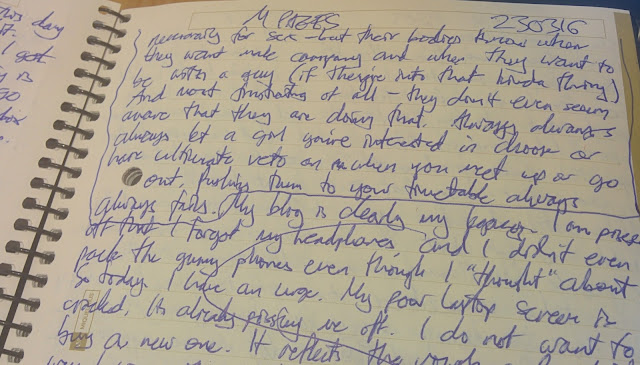 M PAGES 230316
necessarily for sex - but their bodies know when
they want male company and when they want to
be with a guy (if they're into that kinda thing)
And most frustrating of all - they don't even seem
aware that they are doing that. Always always
always let a girl you're interested in choose or
have ultimate veto on when you meet up or go
out. Pushing them to your timetable always
always fails. My blog is clearly my I am pissed
off that I forgot my headphones, and I didn't even
pack the gummy phones even though I "thought" about
so today I have an urge. My poor laptop screen is
cracked. Its already pissing me off. I do not want to
buy a new one. It reflects the
day
I got
is